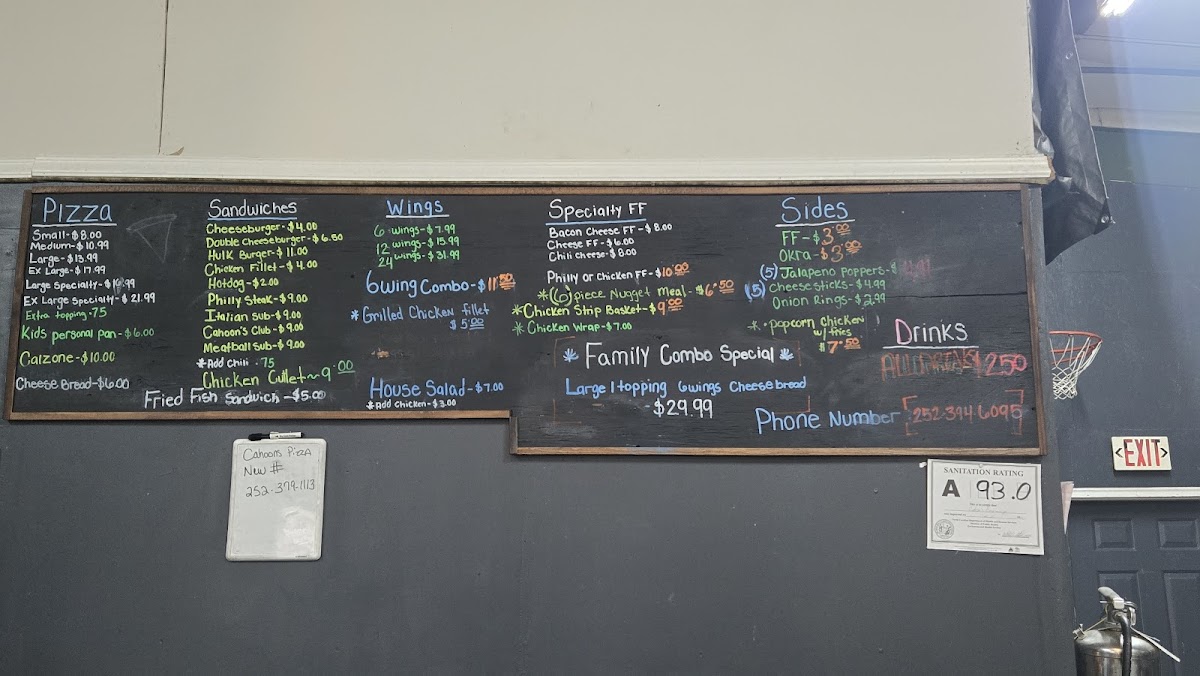 Pizza
Small-$8.00
Medium-$10.99
Large-$13.99
Ex Large-$17.99
Large Specialty-$
Ex Large Specialty-$21.99
Extra topping-75
Kids personal pan-$6.00
Calzone-$10.00
Cheese Bread-$6.00
Sandwiches
Cheeseburger-$4.00
Double Cheeseburger-$6.50
Hulk Burger-$11.00
Chicken Fillet-$4.00
Hotdog-$2.00
Philly Steak-$9.00
Italian Sub-$9.00
Cahoon's Club-$9.00
Meatball Sub-$9.00
*Add Chili .75
Chicken Cutlet~9.00
Fried Fish Sandwich-$5.00
Wings
6 wings-$7.99
12 wings-$15.99
24 wings-$31.99
6wing Combo-$11.50
*Grilled Chicken fillet
$5.00
House Salad-$7.00
*Add chicken-$3.00
Specialty FF
Bacon Cheese FF-$8.00
Cheese FF-$6.00
Chili Cheese-$8.00
Philly or Chicken FF-$10.00
*(6)piece Nugget Meal-$6.50
*Chicken Strip Basket-$9.00
*Chicken Wrap-$7.00
Family Combo Special
Large 1topping 6wings Cheesebread
-$29.99
Sides
FF-$3.00
Okra-$3.00
(5) Jalapeno Poppers-$
(5) Cheesesticks-$4.99
Onion Rings-$2.99
*.popcorn chicken
w/fries
$7.50
Drinks
All DRINKS $2.50
Phone Number 252-394-6095
Cahoons Pizza
New #
252-379-1113
EXIT
SANITATION RATING
A 93.0